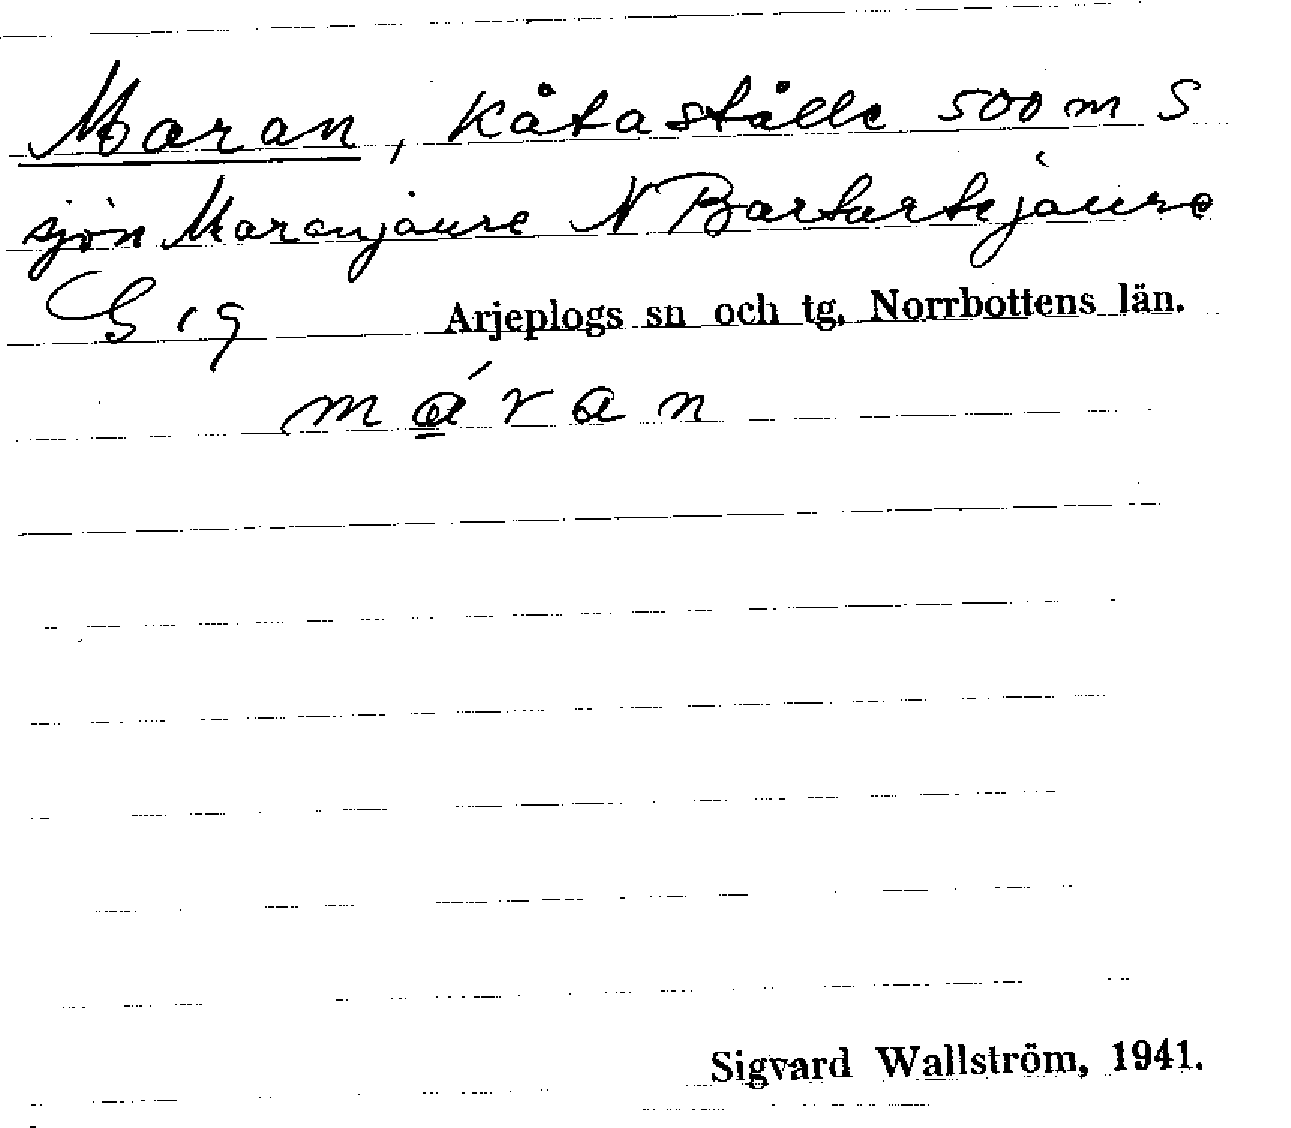 Maran, kåtaställe 500 m S
sjön Maranjaure N Bartartejaure
G 19 Arjeplogs sn och tg, Norrbottens län.
máran
Sigvard Wallström, 1941.